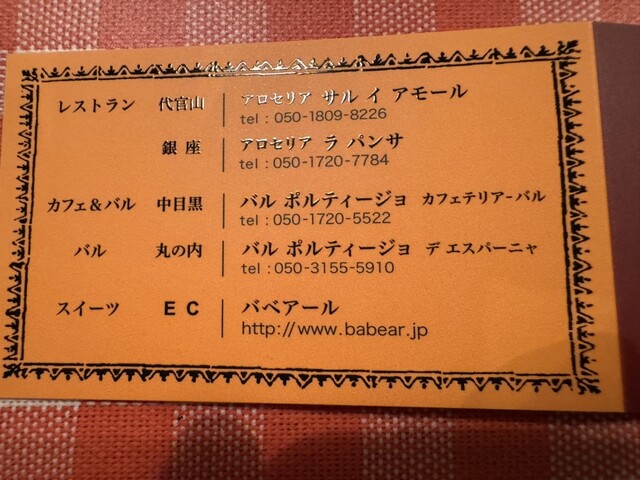 レストラン 代官山 アロセリア サル イ アモール
tel : 050-1809-8226
銀座 アロセリア ラ パンサ
tel : 050-1720-7784
カフェ＆バル 中目黒 バル ポルティージョ カフェテリア-バル
tel : 050-1720-5522
バル 丸の内 バル ポルティージョ デ エスパーニャ
tel : 050-3155-5910
スイーツ EC バベアール
http://www.babear.jp